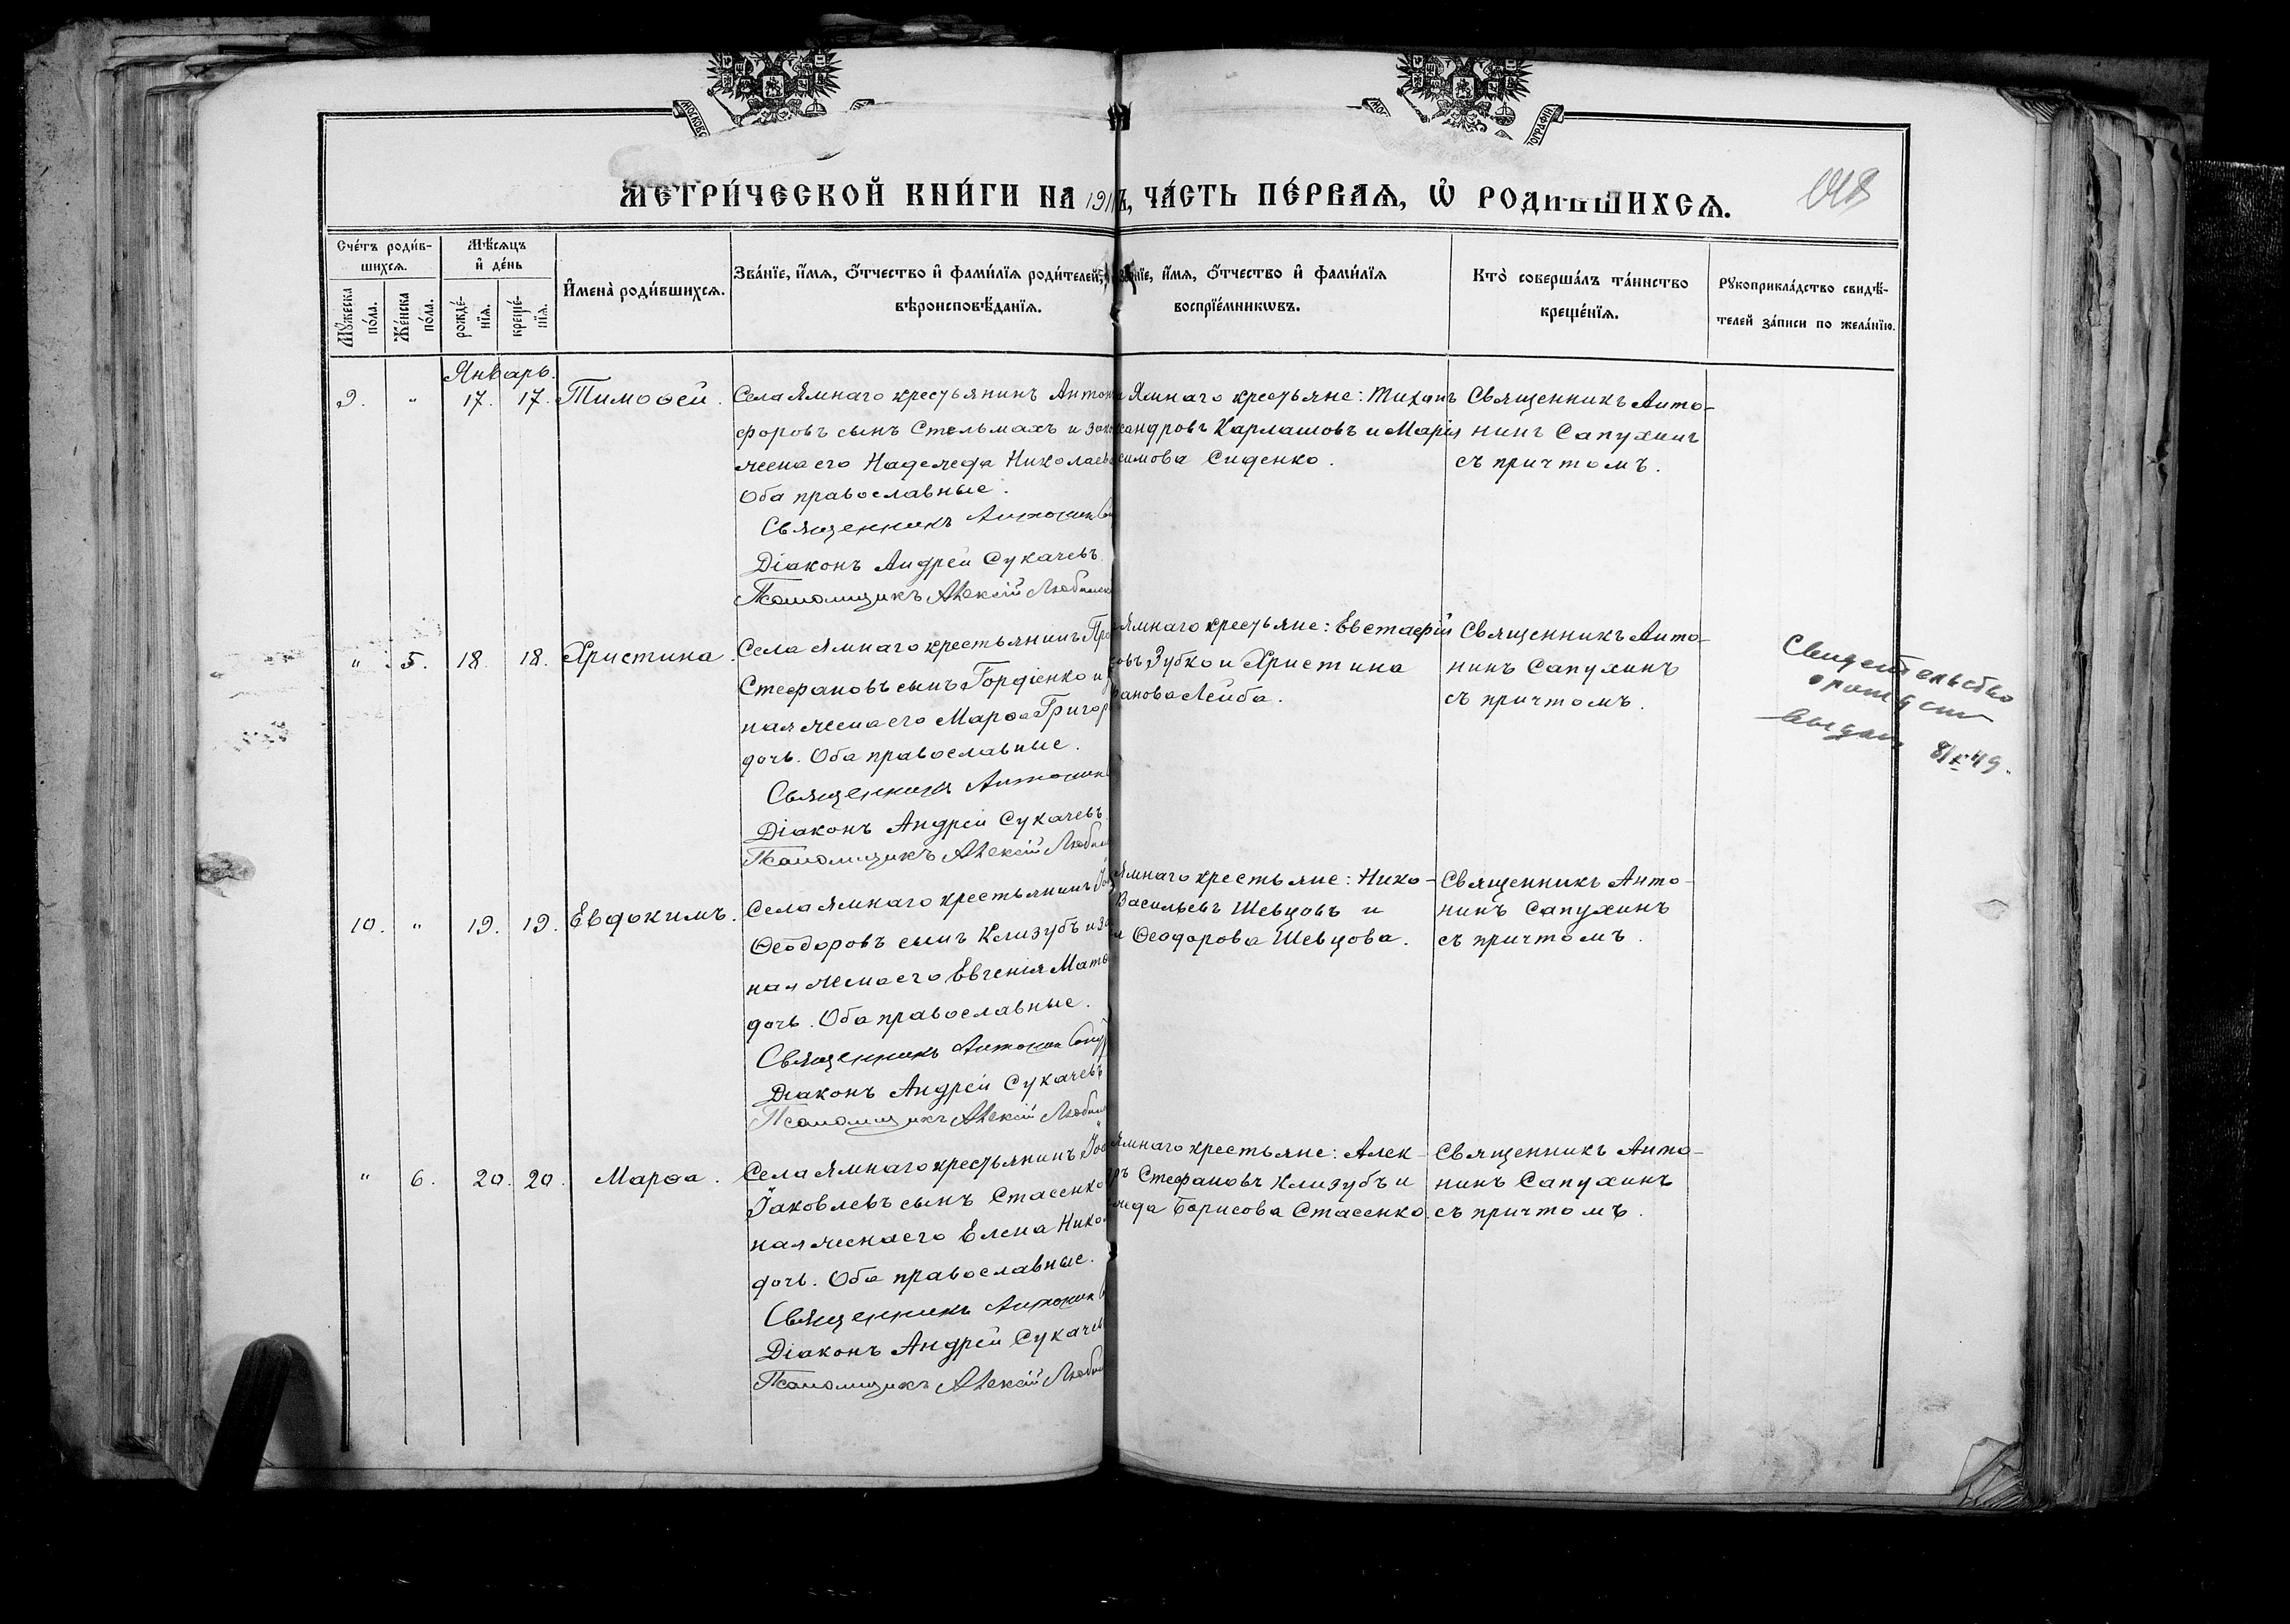 МЕТРИ́ЧЕСКОЙ КНИ́ГИ НА 191 Ъ, ЧА́СТЬ ПЕ́РВАѦ, Ѡ҆ РОДИ́ВШИХСѦ.
Сче́тъ роди́в-
шихсѧ.
Мѣ́сѧцъ
и҆ де́нь
Мꙋ́жеска
по́ла.
Же́нска
по́ла.
рожде́-
нїѧ.
креще́-
нїѧ.
И҆мена̀ роди́вшихсѧ.
Зва́нїе, и҆́мѧ, ѻ҆́тчество и҆ фами́лїѧ роди́телей,
вѣроисповѣ́данїѧ.
и҆́мѧ, ѻ҆́тчество и҆ фами́лїѧ
воспрїе́мникѡвъ.
Кто̀ соверша́лъ та́инство
креще́нїѧ.
Рꙋкоприкла́дство свидѣ́-
телей за́писи по жела́нїю.
Январь.
9. " 17. 17. Тимоѳей.
Села Ямнаго крестьянинъ Антон
форовъ сынъ Стельмахъ и зако
жена его Надежда Николаев
Оба православные.
Священникъ Антонин
Діаконъ Андрей Сукачевъ
Псаломщикъ Алексій
Ямнаго крестьяне: Тихонъ
сандровъ Карлашовъ и Марія
симова Сиденко.
Священникъ Анто-
нинъ Сапухинъ
съ причтомъ.
" 5. 18. 18. Христина.
Села Ямнаго крестьянинъ Про
Стефановъ сынъ Гордіенко и
ная жена его Марѳа Григор
дочь. Оба православные.
Священникъ Антонин
Діаконъ Андрей Сукачевъ
Псаломщикъ Алексій
Ямнаго крестьяне: Евстафій
овъ Зубко и Христина
фанова Лейба.
Священникъ Анто-
нинъ Сапухинъ
съ причтомъ.
Свидетельство
выдан
8/X 49.
10. " 19. 19. Евдокимъ.
Села Ямнаго крестьянинъ
Ѳеодоровъ сынъ Клизубъ и за
ная жена его Евгенія Матв
дочь. Оба православные.
Священникъ Антонин Сапу
Діаконъ Андрей Сукачевъ
Псаломщикъ Алексій
Ямнаго крестьяне: Нико-
Васильевъ Шевцовъ и
Ѳеодорова Шевцова.
Священникъ Анто-
нинъ Сапухинъ
съ причтомъ.
" 6. 20. 20. Марѳа.
Села Ямнаго крестьянинъ
Іаковлевъ сынъ Стасенко
ная жена его Елена Никол
дочь. Оба православные.
Священникъ Антонин
Діаконъ Андрей Сукачев
Псаломщикъ Алексій
Ямнаго крестьяне: Алек-
дръ Стефановъ Клизубъ и
жда Борисова Стасенко.
Священникъ Анто-
нинъ Сапухинъ
съ причтомъ.